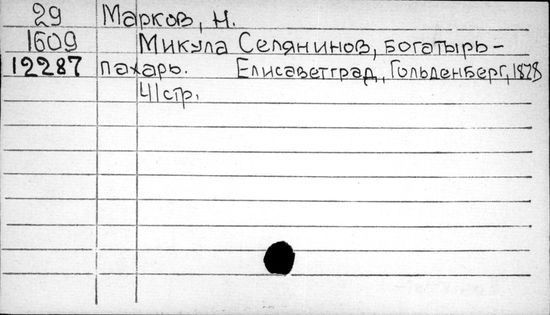 29 Марков, Н.
1609 Микула Селянинов, богатырь-
12287 пахарь. Елисаветград, Гольденберг, 1878
41 стр.